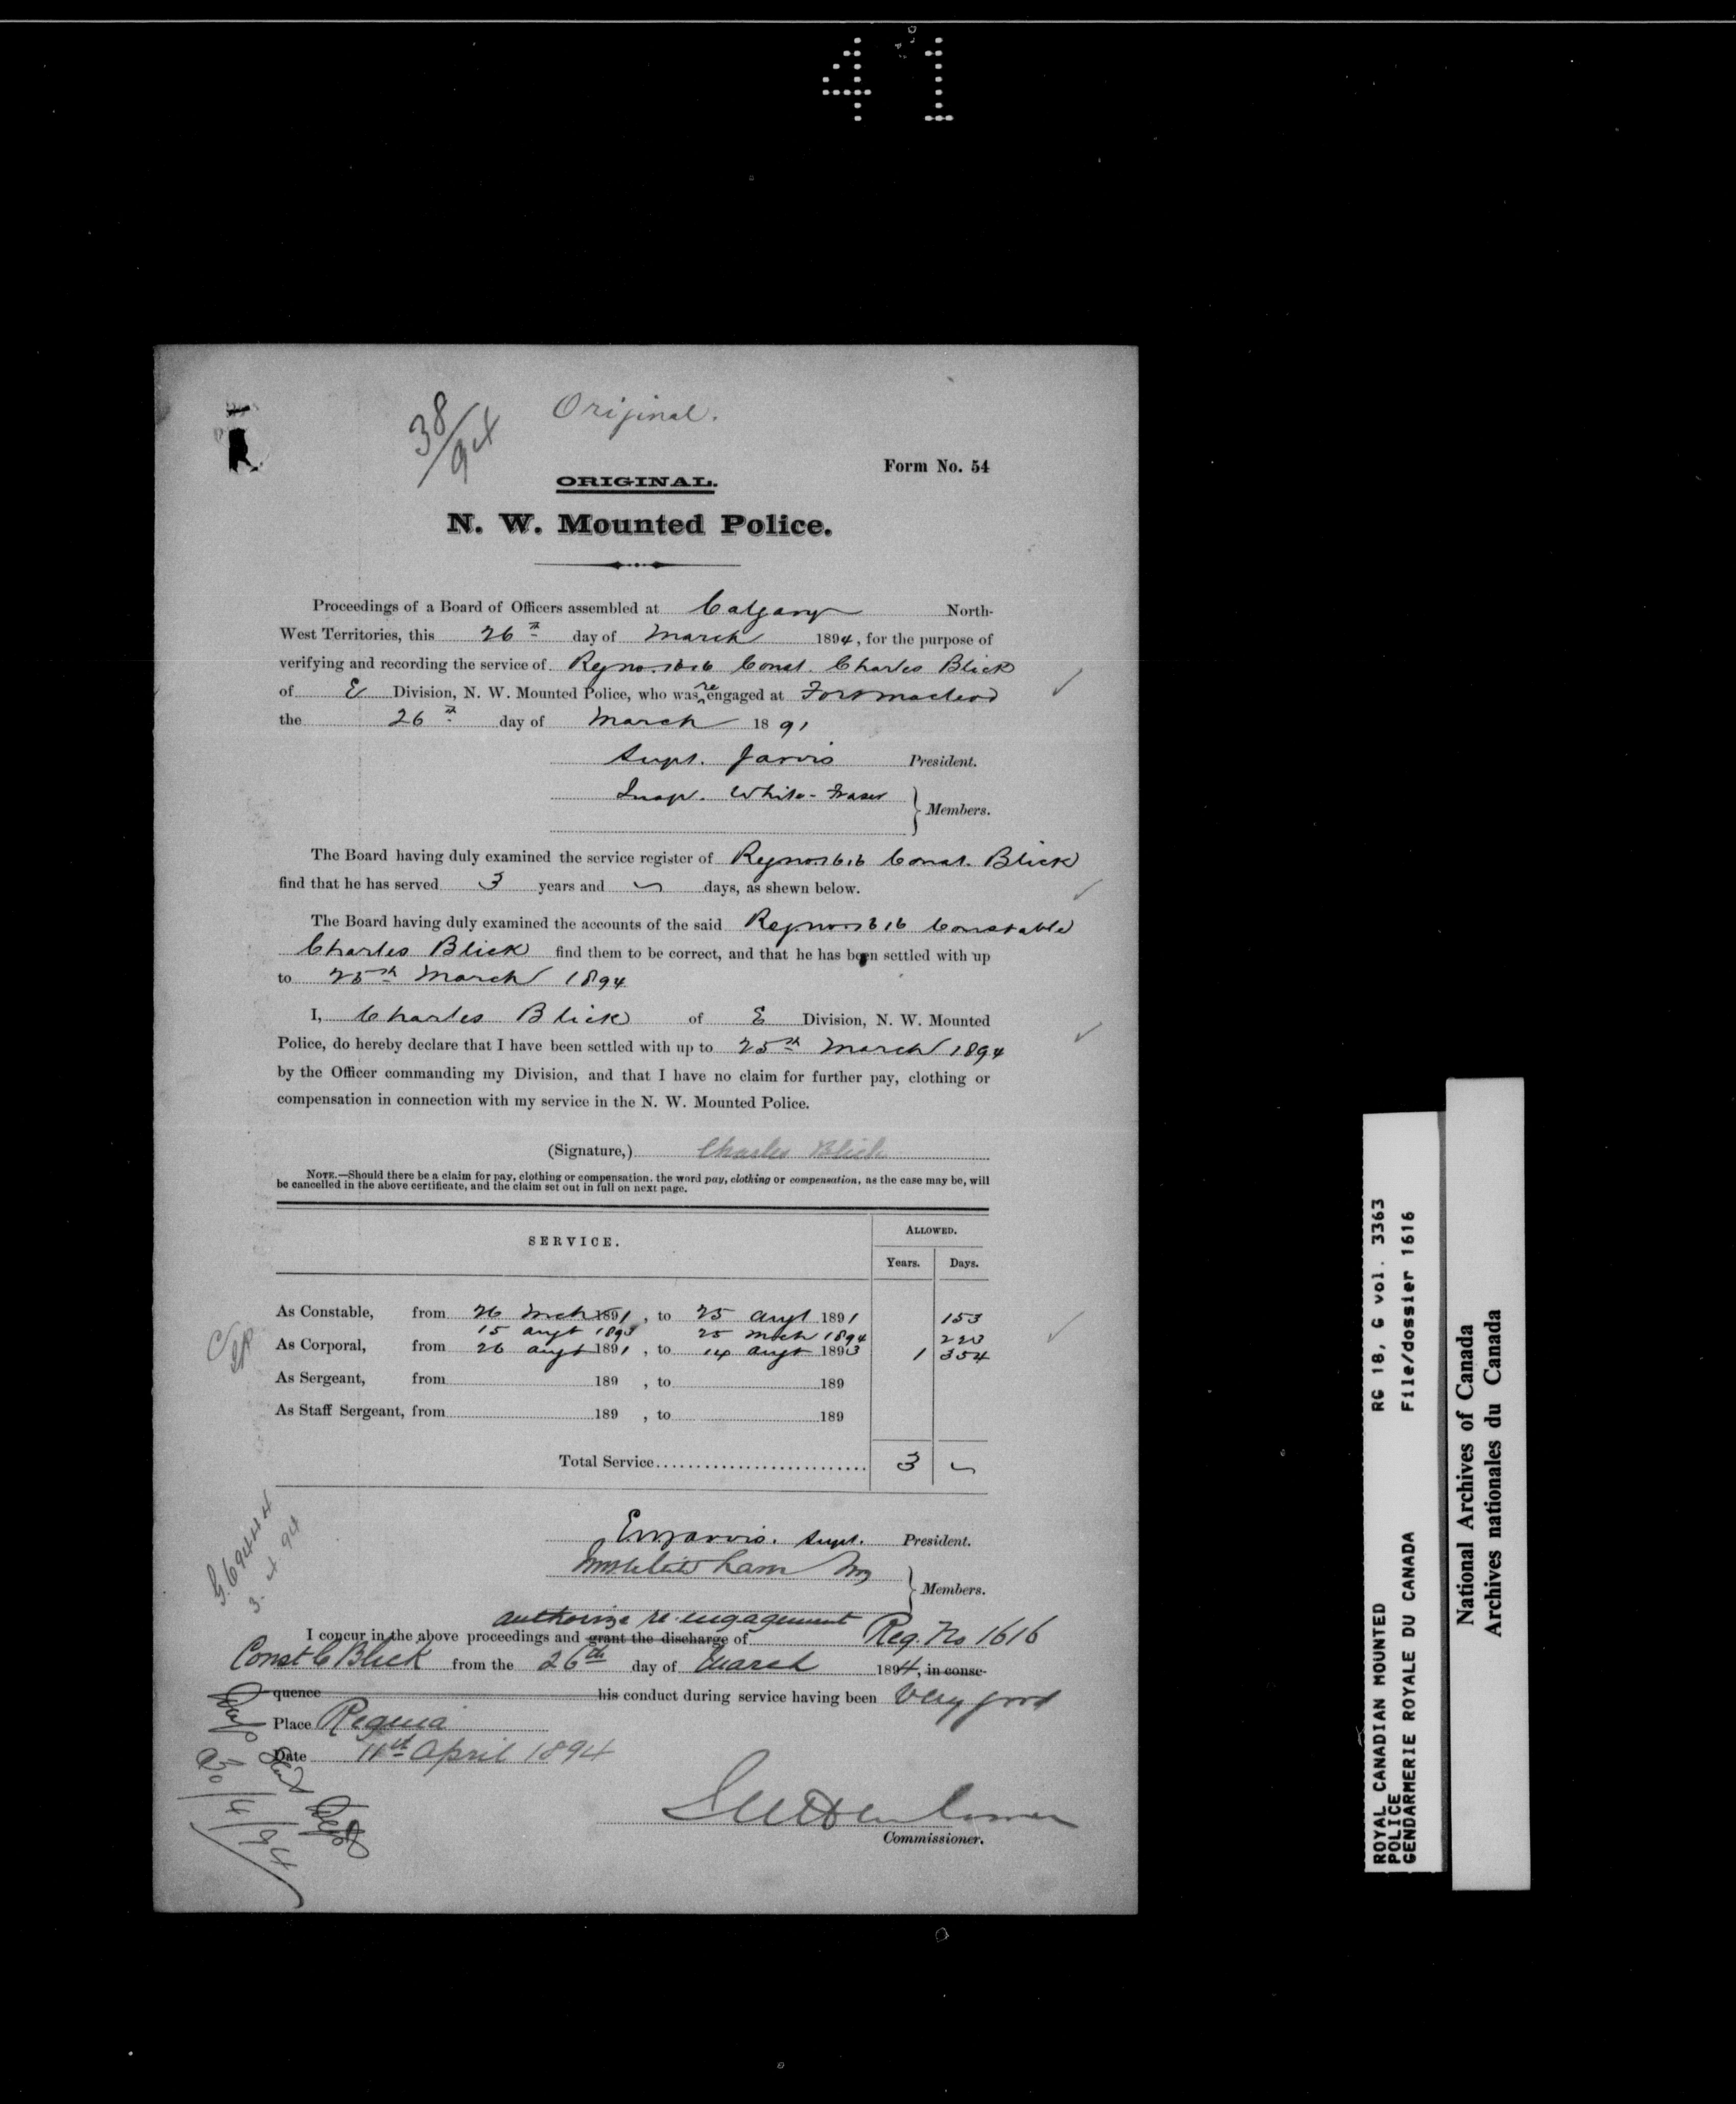 41
Original.
38/94
Form No. 54
ORIGINAL.
N. W. Mounted Police.
Proceedings of a Board of Officers assembled at Calgary North-
West Territories, this 26th day of March 1894, for the purpose of
verifying and recording the service of Reg no. 1616 Const. Charles Blick
of E Division, N. W. Mounted Police, who was re engaged at Fort Macleod
the 26th day of March 1891
Supt. Jarvis President.
Insp. White-Fraser
Members.
The Board having duly examined the service register of Reg no 1616 Const. Blick
find that he has served 3 years and days, as shewn below.
The Board having duly examined the accounts of the said Reg no 1616 Constable
Charles Blick find them to be correct, and that he has been settled with up
to 25th March 1894
I, Charles Blick of E Division, N. W. Mounted
Police, do hereby declare that I have been settled with up to 25th March 1894
by the Officer commanding my Division, and that I have no claim for further pay, clothing or
compensation in connection with my service in the N. W. Mounted Police.
(Signature,) Charles Blick
NOTE.—Should there be a claim for pay, clothing or compensation, the word pay, clothing or compensation, as the case may be, will
be cancelled in the above certificate, and the claim set out in full on next page.
SERVICE.
ALLOWED.
Years. Days.
As Constable, from 26 Mch 1891, to 25 Augt 1891 153
15 Augt 1893 25 Mch 1894 223
As Corporal, from 26 Augt 1891, to 14 Augt 1893 1 354
As Sergeant, from 189 , to 189
As Staff Sergeant, from 189 , to 189
Total Service 3
Jarvis. Supt. President.
Members.
authorize re-engagement
I concur in the above proceedings and grant the discharge of Reg. No 1616
Const C Blick from the 26th day of March 1894, in conse-
quence his conduct during service having been Very good
Place Regina
Date 11th April 1894
Commissioner.
ROYAL CANADIAN MOUNTED
POLICE
GENDARMERIE ROYALE DU CANADA
RG 18, G vol. 3363
File/dossier 1616
National Archives of Canada
Archives nationales du Canada